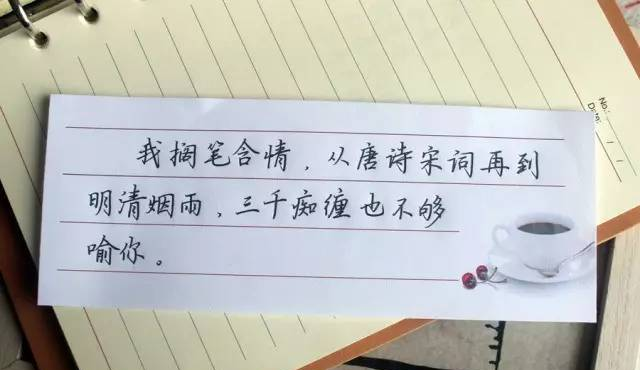 我搁笔含情，从唐诗宋词再到
明清烟雨，三千痴缠也不够
喻你。
No: